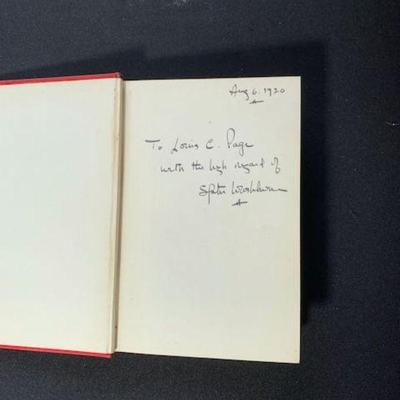 Aug 6. 1920
To Louis C. Page
with the high regard of
Washburn